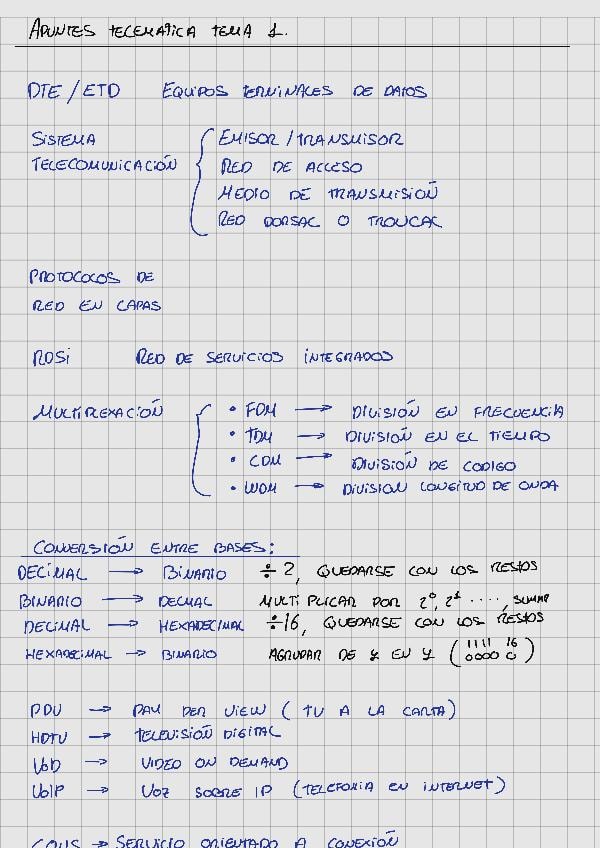 APUNTES TELEMATICA TEMA 1.
DTE / ETD EQUIPOS TERMINALES DE DATOS
SISTEMA
TELECOMUNICACIÓN
EMISOR / TRANSMISOR
RED DE ACCESO
MEDIO DE TRANSMISIÓN
RED DORSAL O TRONCAL
PROTOCOLOS DE
RED EN CAPAS
RDSi RED DE SERVICIOS INTEGRADOS
MULTIPLEXACIÓN
• FDM → DIVISIÓN EN FRECUENCIA
• TDM → DIVISIÓN EN EL TIEMPO
• CDM → DIVISIÓN DE CODIGO
• WDM → DIVISION LONGITUD DE ONDA
CONVERSIÓN ENTRE BASES:
DECIMAL → BINARIO ÷ 2, QUEDARSE CON LOS RESTOS
BINARIO → DECIMAL MULTIPLICAR POR 2⁰, 2¹ ····, SUMAR
DECIMAL → HEXADECIMAL ÷16, QUEDARSE CON LOS RESTOS
HEXADECIMAL → BINARIO AGRUPAR DE 4 EN 4 (1111 16
0000 0)
PPV → PAY PER VIEW (TV A LA CARTA)
HDTV → TELEVISIÓN DIGITAL
VoD → VIDEO ON DEMAND
VoIP → VOZ SOBRE IP (TELEFONIA EN INTERNET)
CONS → SERVICIO ORIENTADO A CONEXIÓN